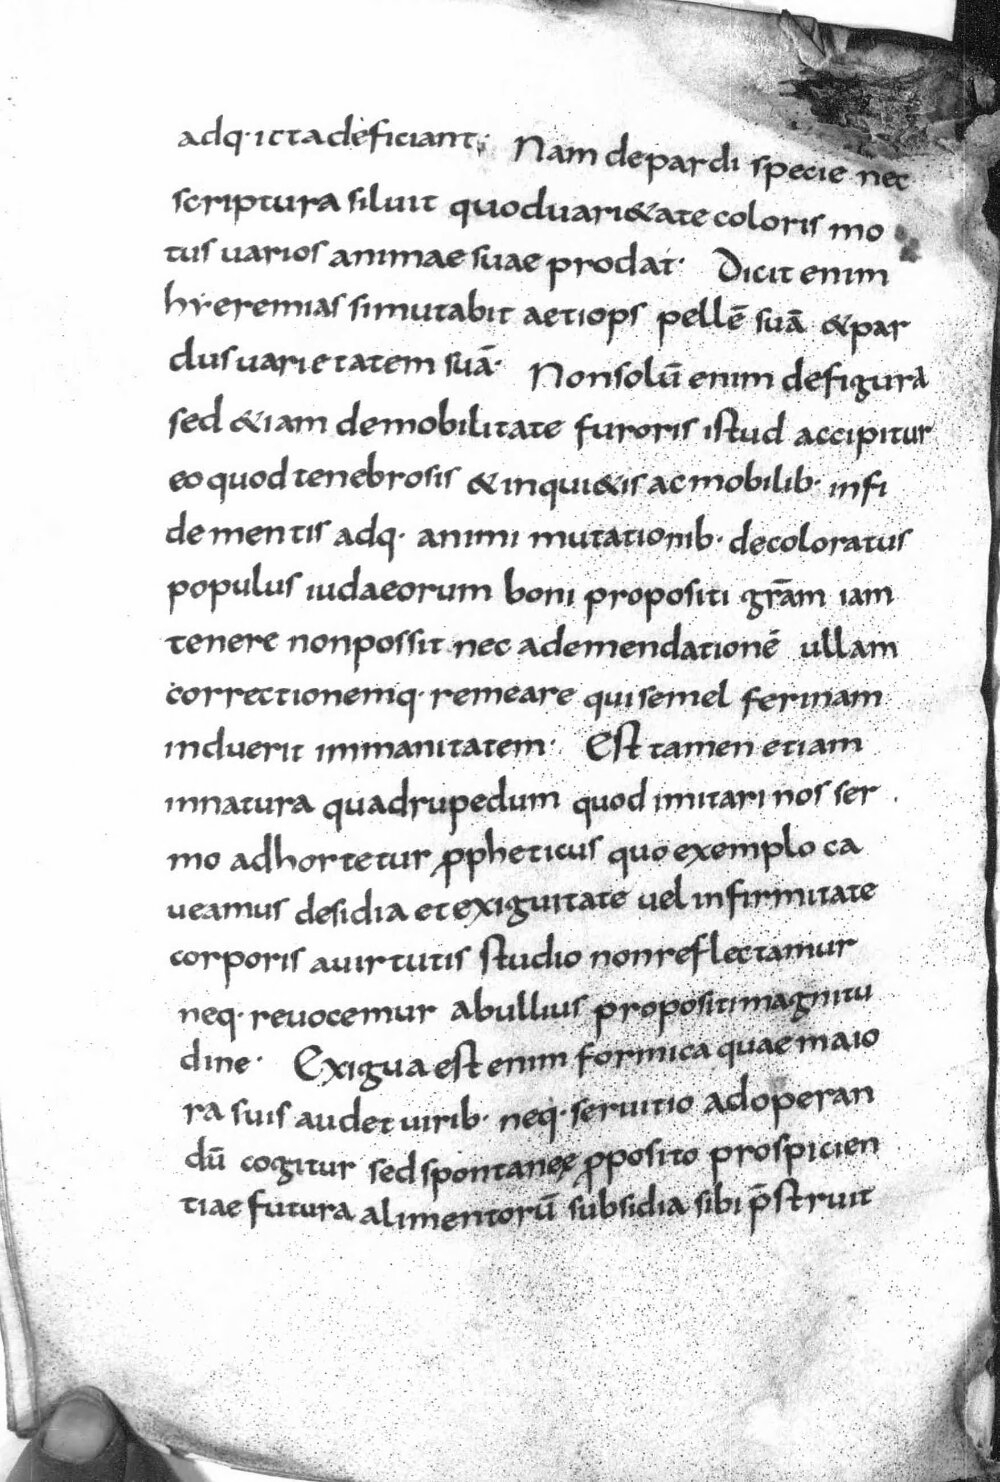 adq· icta deficiant; Nam de pardi specie nec
scriptura siluit quod uari&ate coloris mo
tus uarios animae suae prodat· Dicit enim
hyeremias si mutabit aetiops pellē suā &par
dus uarietatem suā· Non solū enim de figura
sed &iam de mobilitate furoris istud accipitur
eo quod tenebrosis & inqui&is ac mobilib· infi
de mentis adq· animi mutationib· decoloratus
populus iudaeorum boni propositi gr̄am iam
tenere non possit nec ad emendationē ullam
correctionemq· remeare qui semel ferinam
induerit immanitatem· Est tamen etiam
in natura quadrupedum quod imitari nos ser
mo adhortetur ꝓpheticus quo exemplo ca
ueamus desidia et exiguitate uel infirmitate
corporis a uirtutis studio non reflectamur
neq· reuocemur ab ullius propositi magnitu
dine· Exigua est enim formica quae maio
ra suis audet uirib· neq· seruitio ad operan
dū cogitur sed spontaneę ꝓposito prospicien
tiae futura alimentorū subsidia sibi p̄struit